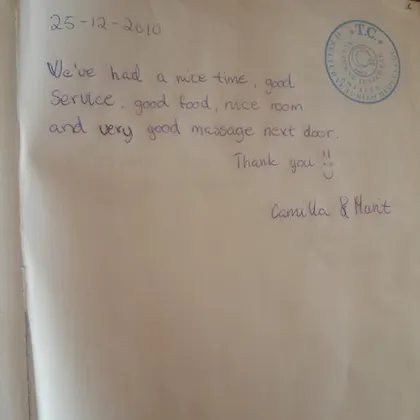 25-12-2010
We've had a nice time, good
Service, good food, nice room
and very good massage next door.
Thank you !!
Camilla & Marit
T.C.